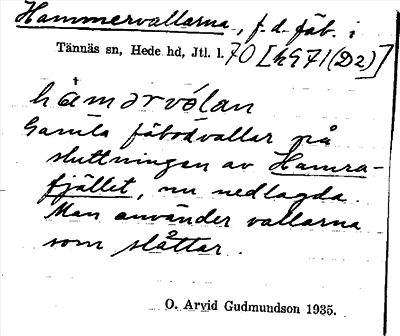 Hammervallarna, f.d. fäb. i
Tännäs sn, Hede hd, Jtl. l. 70 [h971(D2)]
hàmərvólan
Gamla fäbodvallar på
sluttningen av Hamra-
fjället, nu nedlagda.
Man använder vallarna
som slåttar.
O. Arvid Gudmundson 1935.